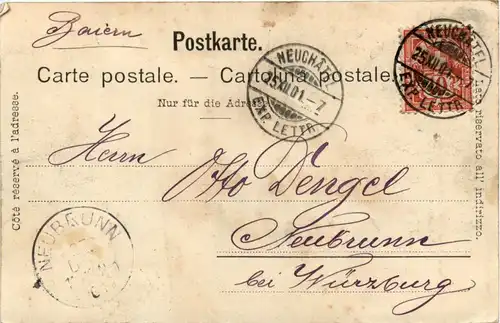 Baiern
Postkarte.
Carte postale. — Cartolina postale.
Nur für die Adresse.
NEUCHÂTEL
25.XII.01.–7
EXP. LETTR.
NEUCHÂTEL
25.XII.01.
EXP. LETTR.
Côté réservé à l'adresse.
Lato riservato all' indirizzo.
Herrn
Otto Dengel
Neubrunn
bei Würzburg
NEUBRUNN